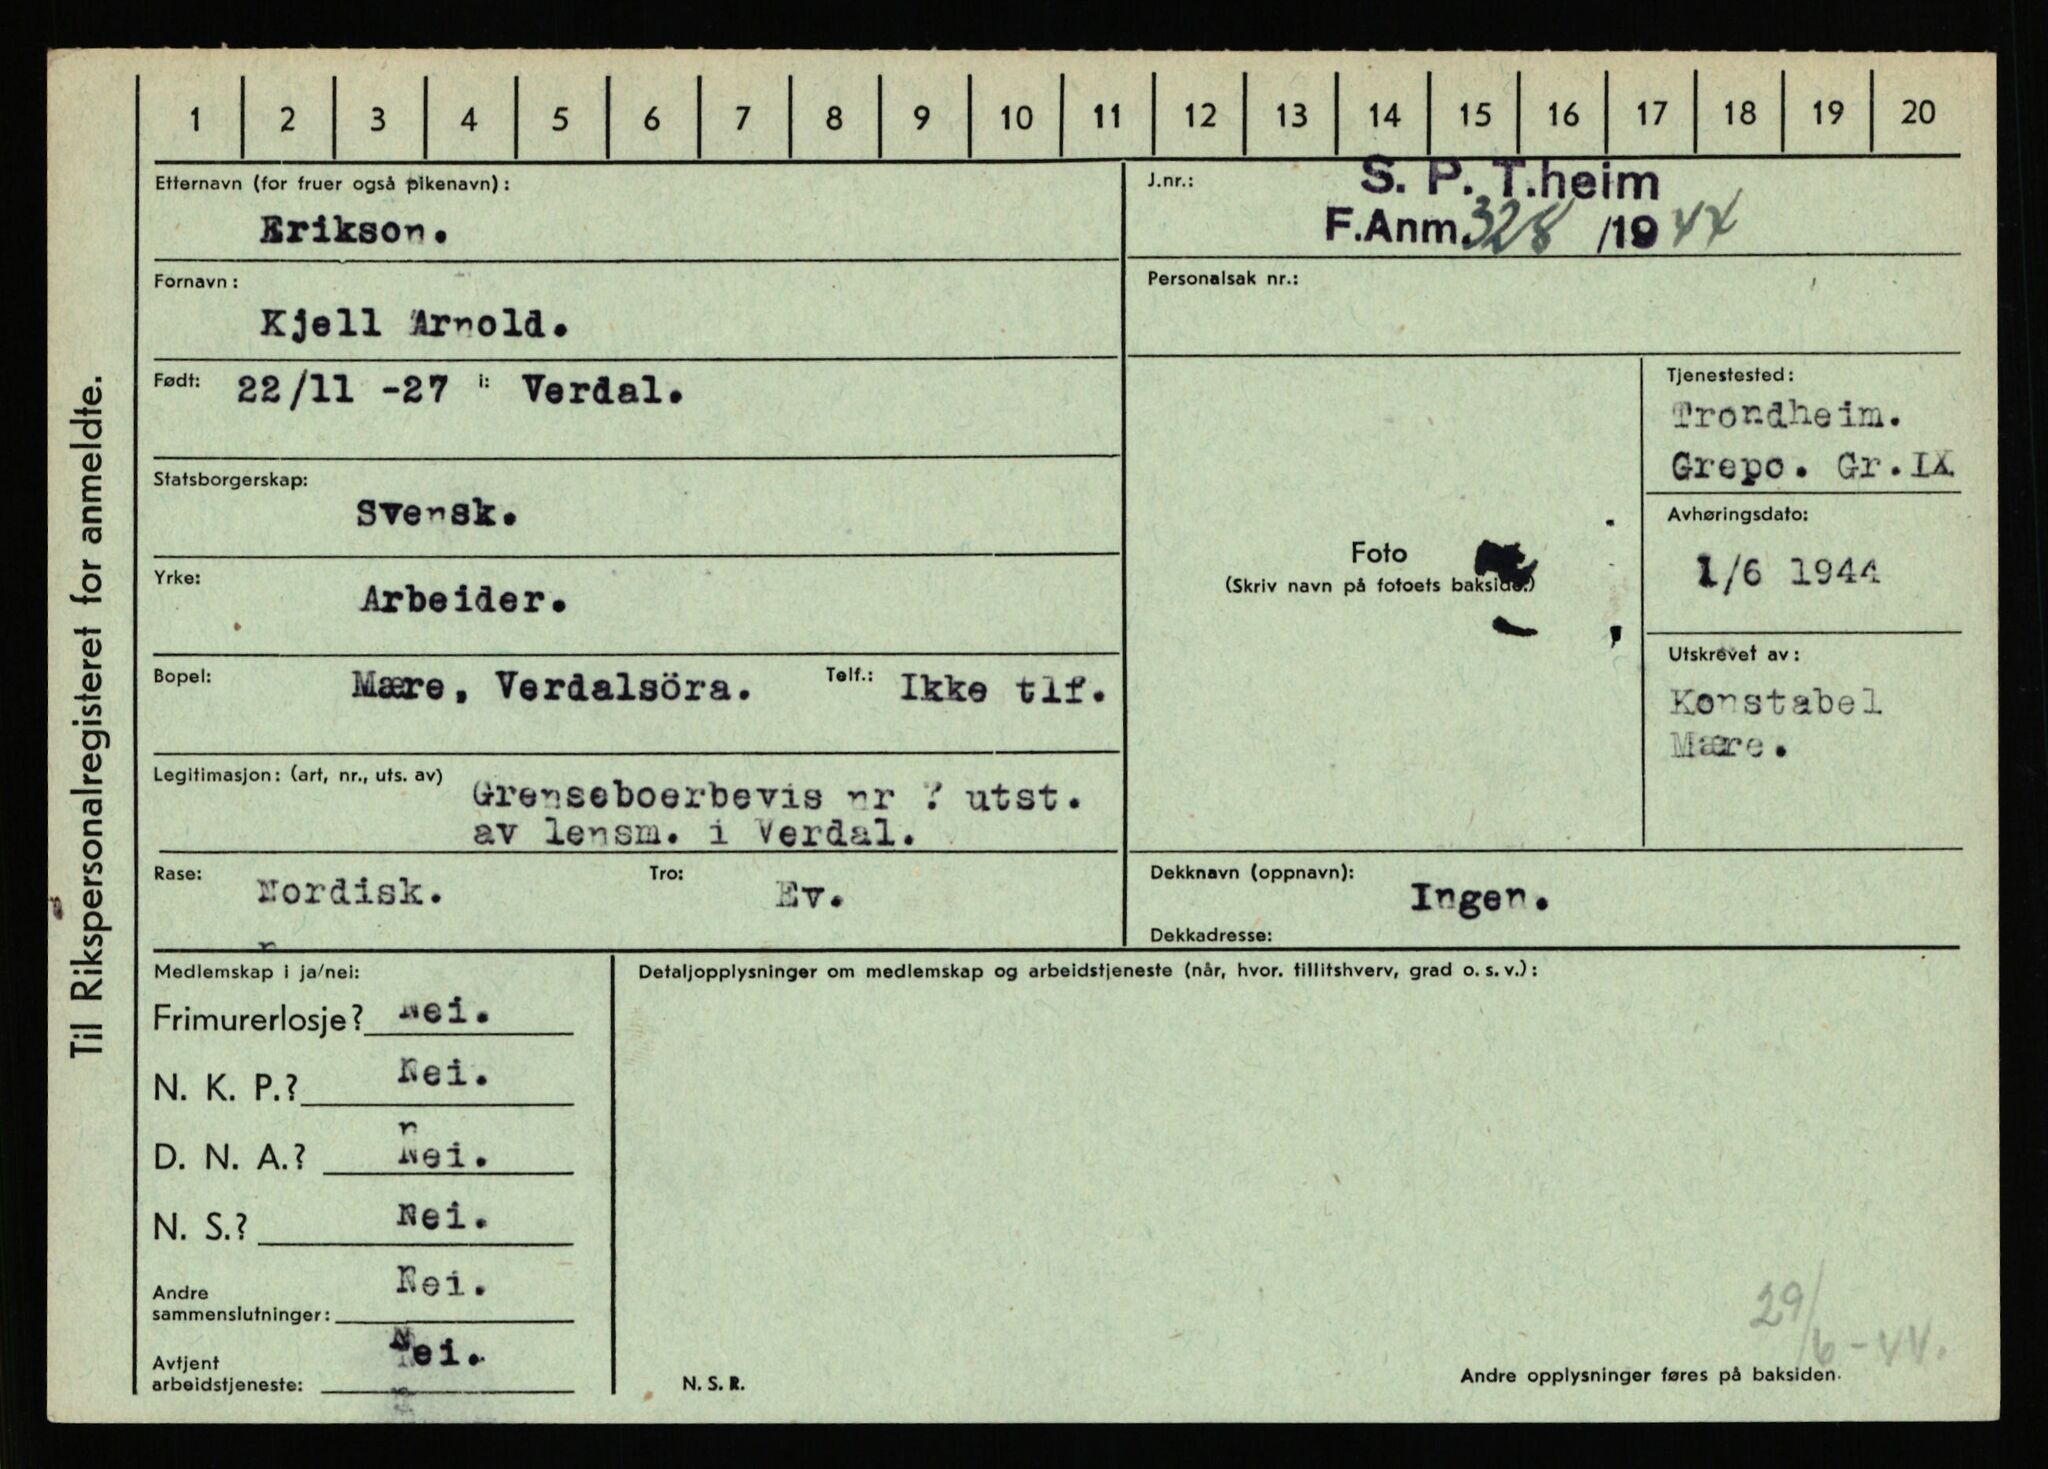 Til Rikspersonalregisteret for anmeldte.
1 2 3 4 5 6 7 8 9 10 11 12 13 14 15 16 17 18 19 20
Etternavn (for fruer også pikenavn):
Erikson.
Fornavn:
Kjell Arnold.
Født: 22/11 -27 i: Verdal.
Statsborgerskap:
Svensk.
Yrke:
Arbeider.
Bopel: Mære, Verdalsöra. Telf.: Ikke tlf.
Legitimasjon: (art, nr., uts. av) Grenseboerbevis nr ? utst.
av lensm. i Verdal.
Rase: Nordisk. Tro: Ev.
J.nr.: S. P. T.heim
F.Anm. 328 /1944
Personalsak nr.:
Foto
(Skriv navn på fotoets bakside.)
Tjenestested:
Trondheim.
Grepo. Gr.IX
Avhøringsdato:
1/6 1944
Utskrevet av:
Konstabel
Mære.
Dekknavn (oppnavn):
Ingen.
Dekkadresse:
Medlemskap i ja/nei:
Frimurerlosje? Nei.
N. K. P.? Nei.
D. N. A.? Nei.
N. S.? Nei.
Andre
sammenslutninger: Nei.
Avtjent
arbeidstjeneste: Nei.
Detaljopplysninger om medlemskap og arbeidstjeneste (når, hvor. tillitshverv, grad o. s. v.):
29/6-44.
N. S. R.
Andre opplysninger føres på baksiden.